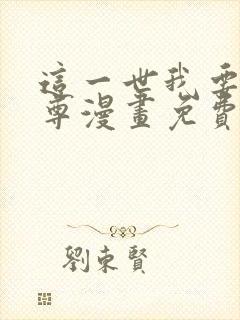 這一世我要
尊漫畫免費
劉東賢